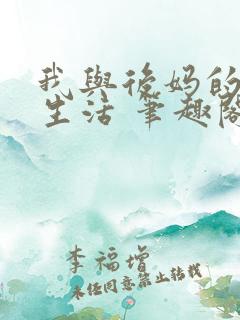 我與後妈的
生活 笔趣阁
李福增
未经同意禁止转载